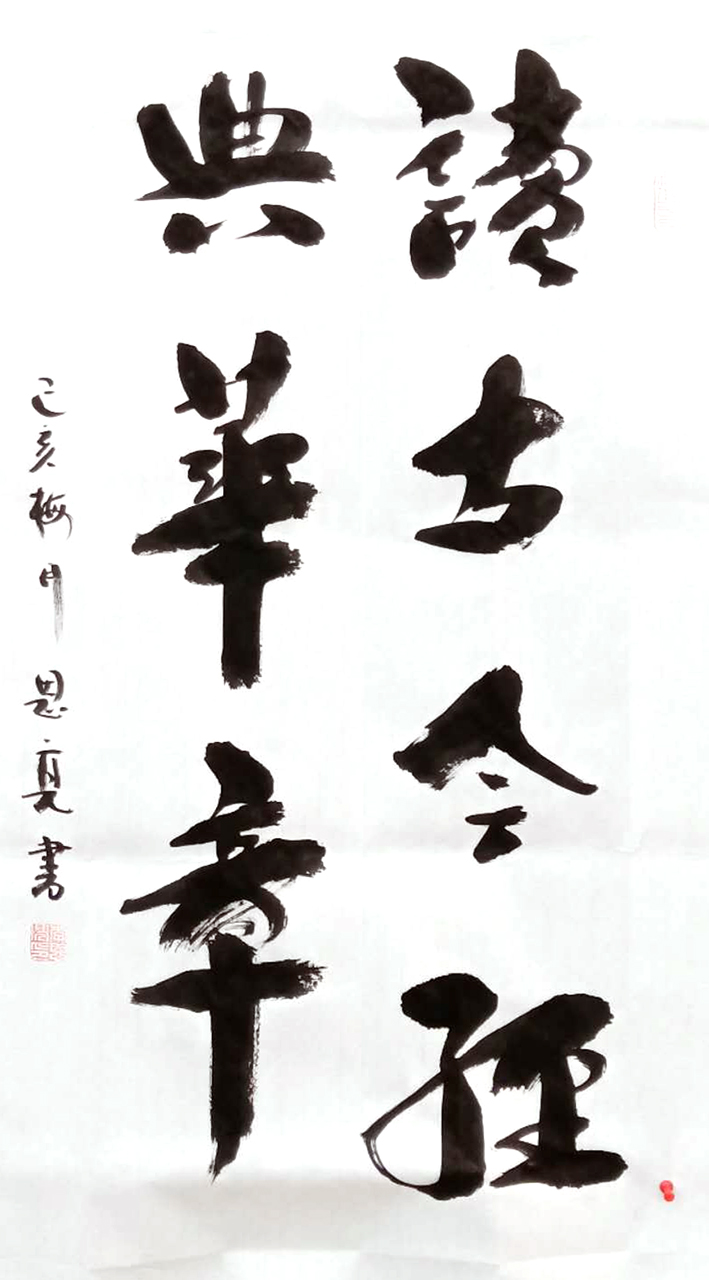 讀古今經
典華章
己亥梅月思亮書